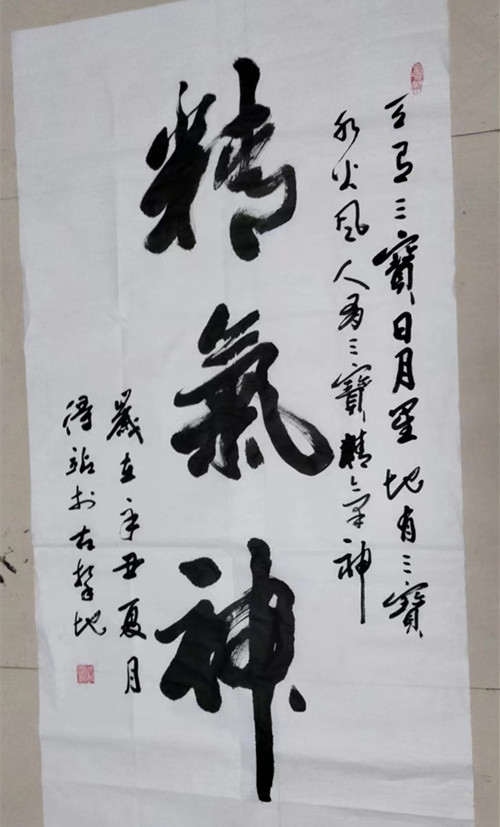 天有三寶日月星地有三寶
水火風人有三寶精氣神
精氣神
歲在辛丑夏月
於古黎地